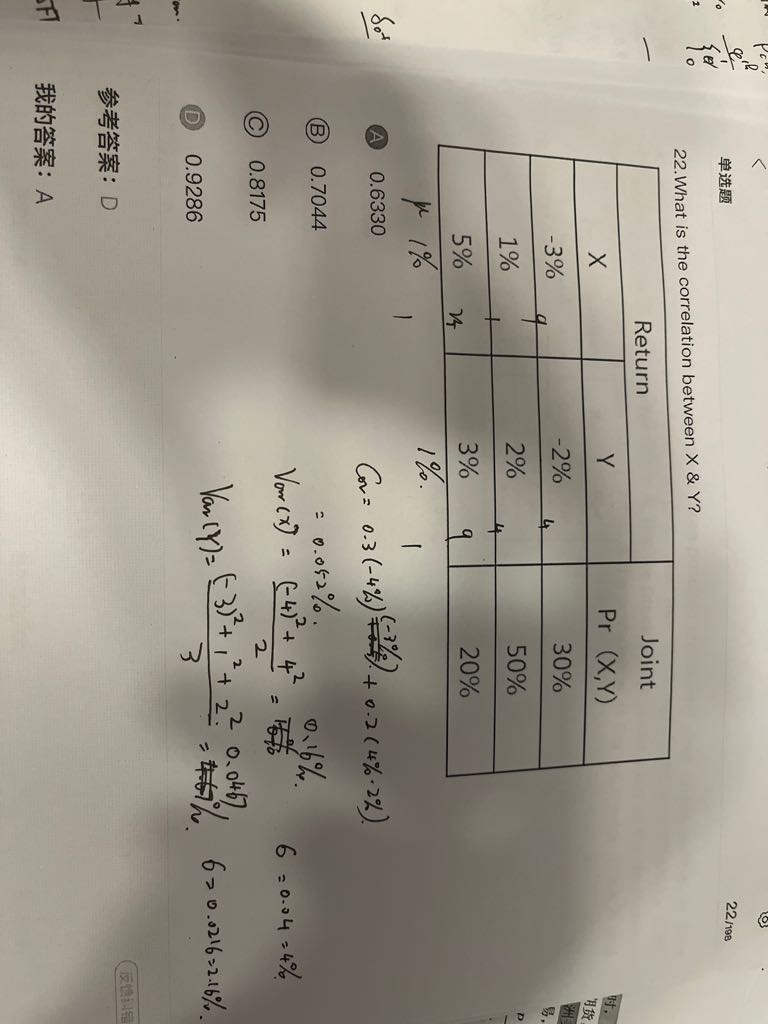 单选题
22/198
22.What is the correlation between X & Y?
Return Joint
X Y Pr (X,Y)
-3% 9 -2% 4 30%
1% 1 2% 4 50%
5% 3% 9 20%
μ 1% 1 1% 1
A 0.6330
B 0.7044
C 0.8175
D 0.9286
Cov = 0.3(-4%)(-3%) + 0.2(4%·2%).
= 0.052%.
Var(X) = (-4)² + 4² / 2 = 0.16%. 6 = 0.04 = 4%
Var(Y) = (-3)² + 1² + 2² / 3 = 0.0467%. 6 = 0.0216 = 2.16%.
参考答案：D
我的答案：A
反馈纠错